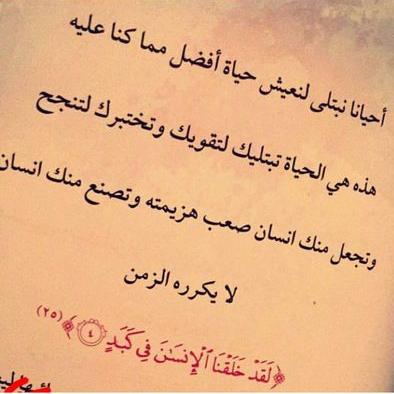 أحيانا نبتلى لنعيش حياة أفضل مما كنا عليه
هذه هي الحياة تبتليك لتقويك وتختبرك لتنجح
وتجعل منك انسان صعب هزيمته وتصنع منك انسان
لا يكرره الزمن
﴿لَقَدْ خَلَقْنَا ٱلْإِنسَٰنَ فِي كَبَدٍ ٤﴾ (٢٥)